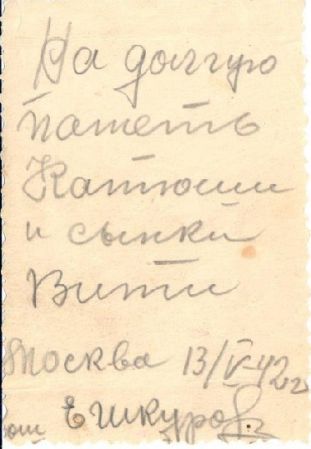 На долгую
паметь
Катюши
и сынки
Вити
Москва 13/V-42г
от